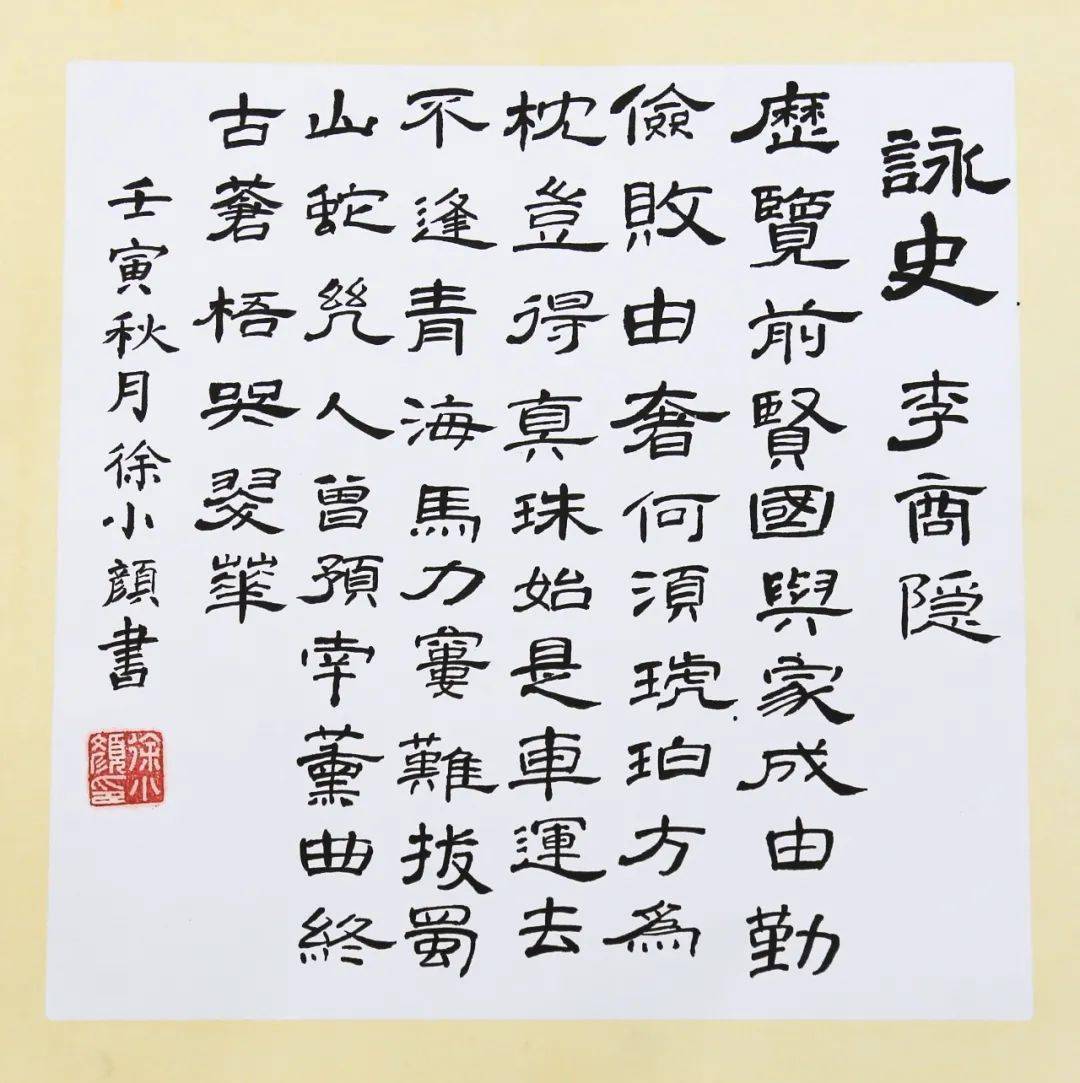 詠史 李商隐
歷覽前賢國與家成由勤
儉敗由奢何湏琥珀方為
枕豈得真珠始是車運去
不逢青海馬力窶難拔蜀
山蛇幾人曾預南薰曲終
古蒼梧哭翠華
壬寅秋月徐小顏書
徐小顏印